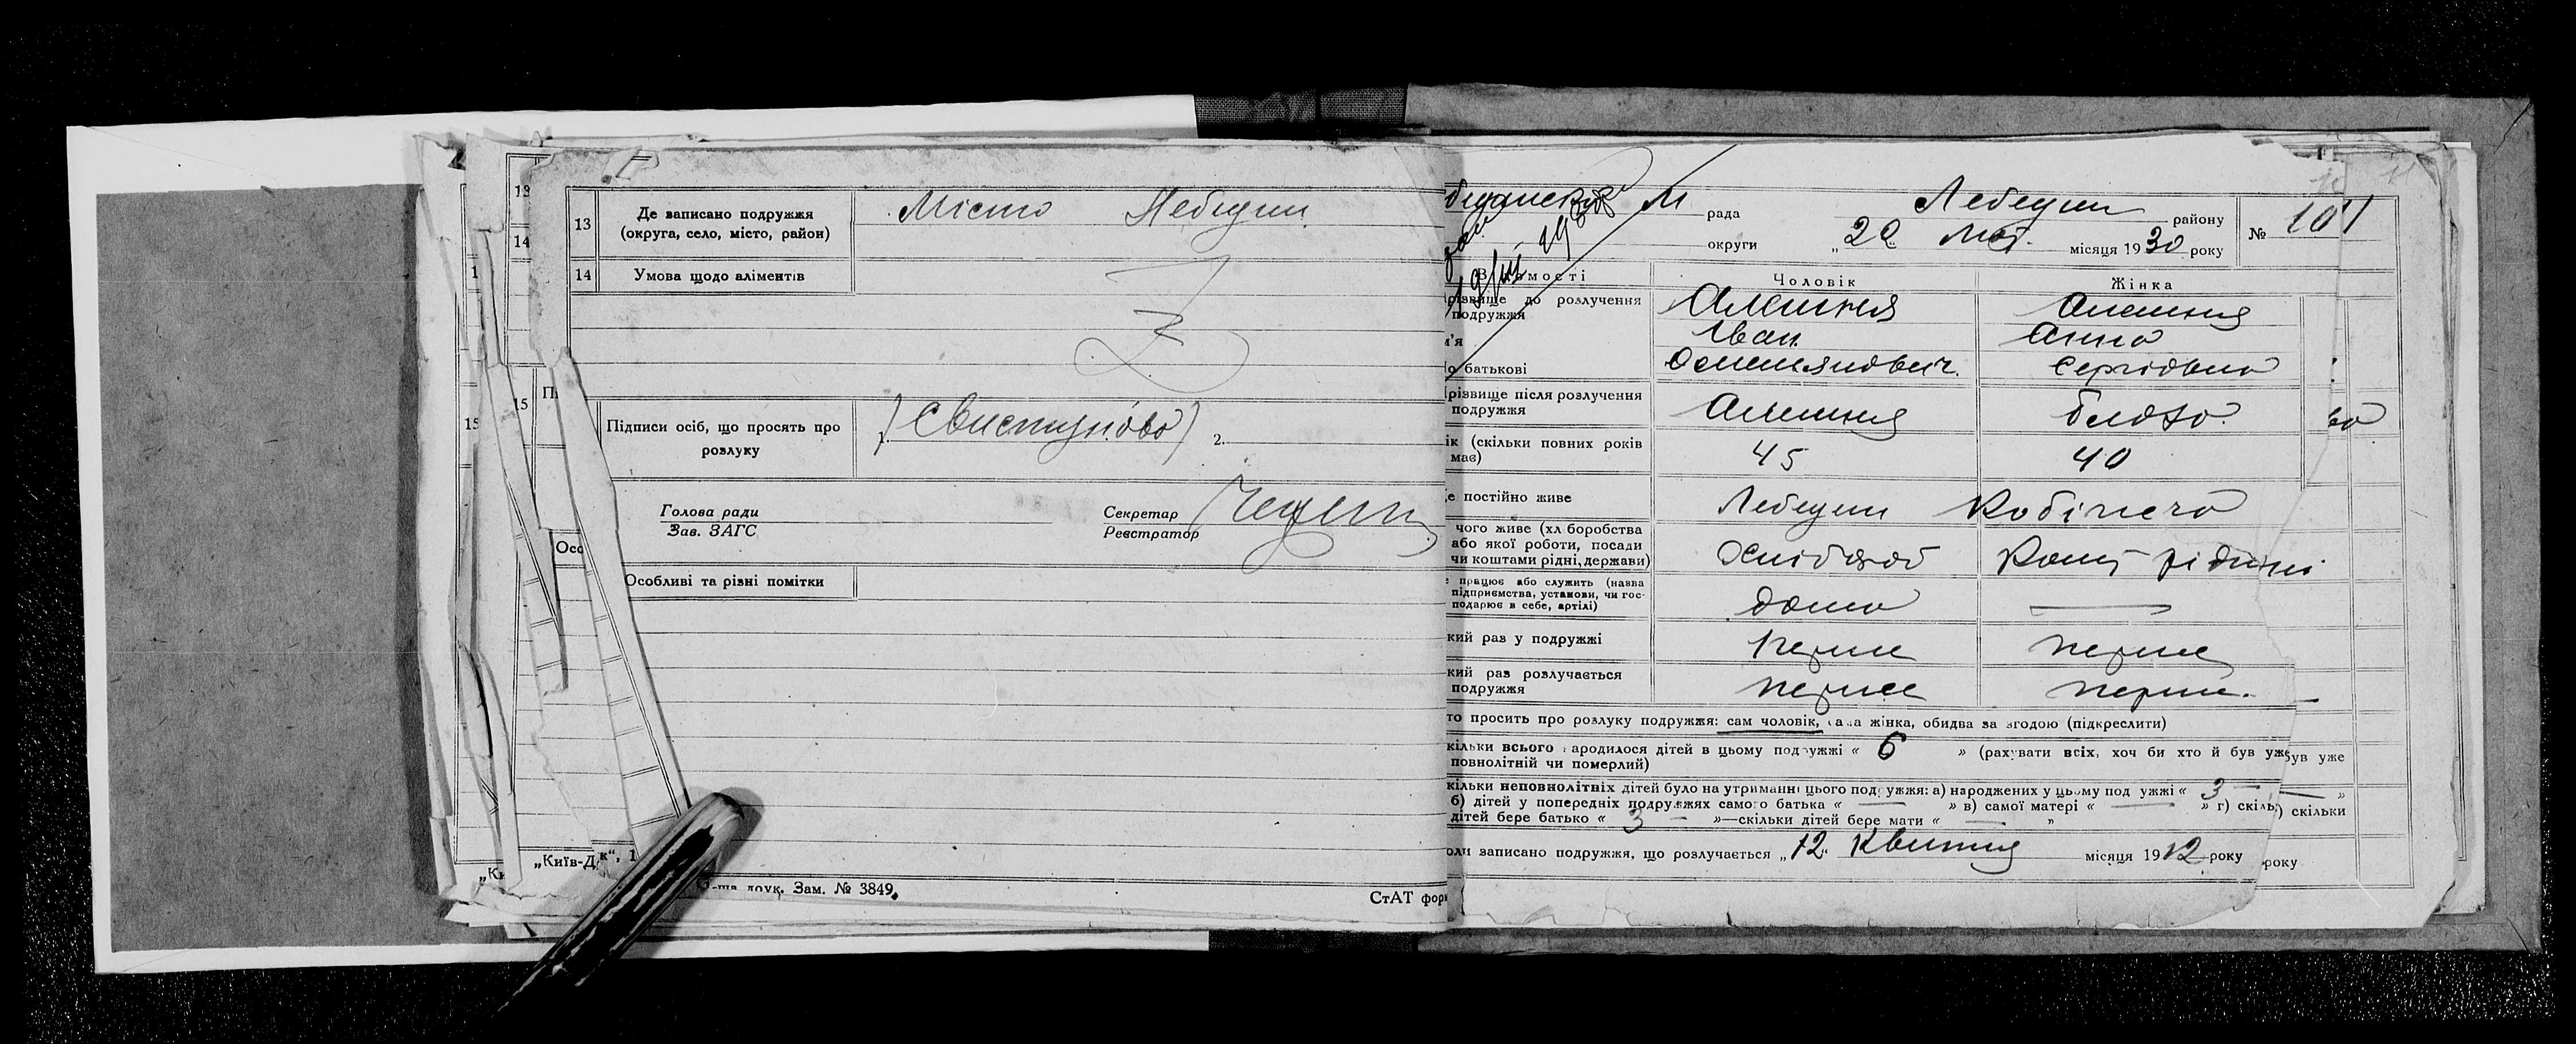 13 Де записано подружжя (округа, село, місто, район) Місто Лебедин
14 Умова щодо аліментів
Підписи осіб, що просять про розлуку 1. (Свистунова) 2.
Голова ради
Зав. ЗАГС
Секретар
Реєстратор
Особливі та різні помітки
Зам. № 3849.
СтАТ
13
14
15
15
„Київ-Д
М рада Лебедин району № 101
округи „ 20 Мая місяця 1930 року
Чоловік Жінка
до розлучення подружжя Алешня Алешня
Іван Анна
батькові Омельянович Сергіовна
після розлучення подружжя Алешня
(скільки повних років має) 45 40
постійно живе Лебедин
чого живе (хліборобства
або якої роботи, посади
чи коштами рідні, держави) Хлібороб Кошт рідні
працює або служить (назва
підприємства, установи, чи гос-
подарює в себе, артілі) дома —
раз у подружжі перше перше
раз розлучається
подружжя перше перше.
просить про розлуку подружжя: сам чоловік, сама жінка, обидва за згодою (підкреслити)
всього народилося дітей в цьому подружжі « 6 » (рахувати всіх, хоч би хто й був уже
був уже
повнолітній чи померлий)
неповнолітніх дітей було на утриманні цього подружжя: а) народжених у цьому подружжі « 3 — »
б) дітей у попередніх подружжях самого батька « — » в) самої матері « — » г) скільки
дітей бере батько « 3 — »—скільки дітей бере мати « — »
записано подружжя, що розлучається „ 12 “ Квитня місяця 1912 року
року